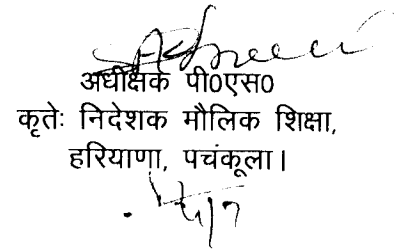 अधीक्षक पी0एस0
कृतेः निदेशक मौलिक शिक्षा,
हरियाणा, पचंकूला।